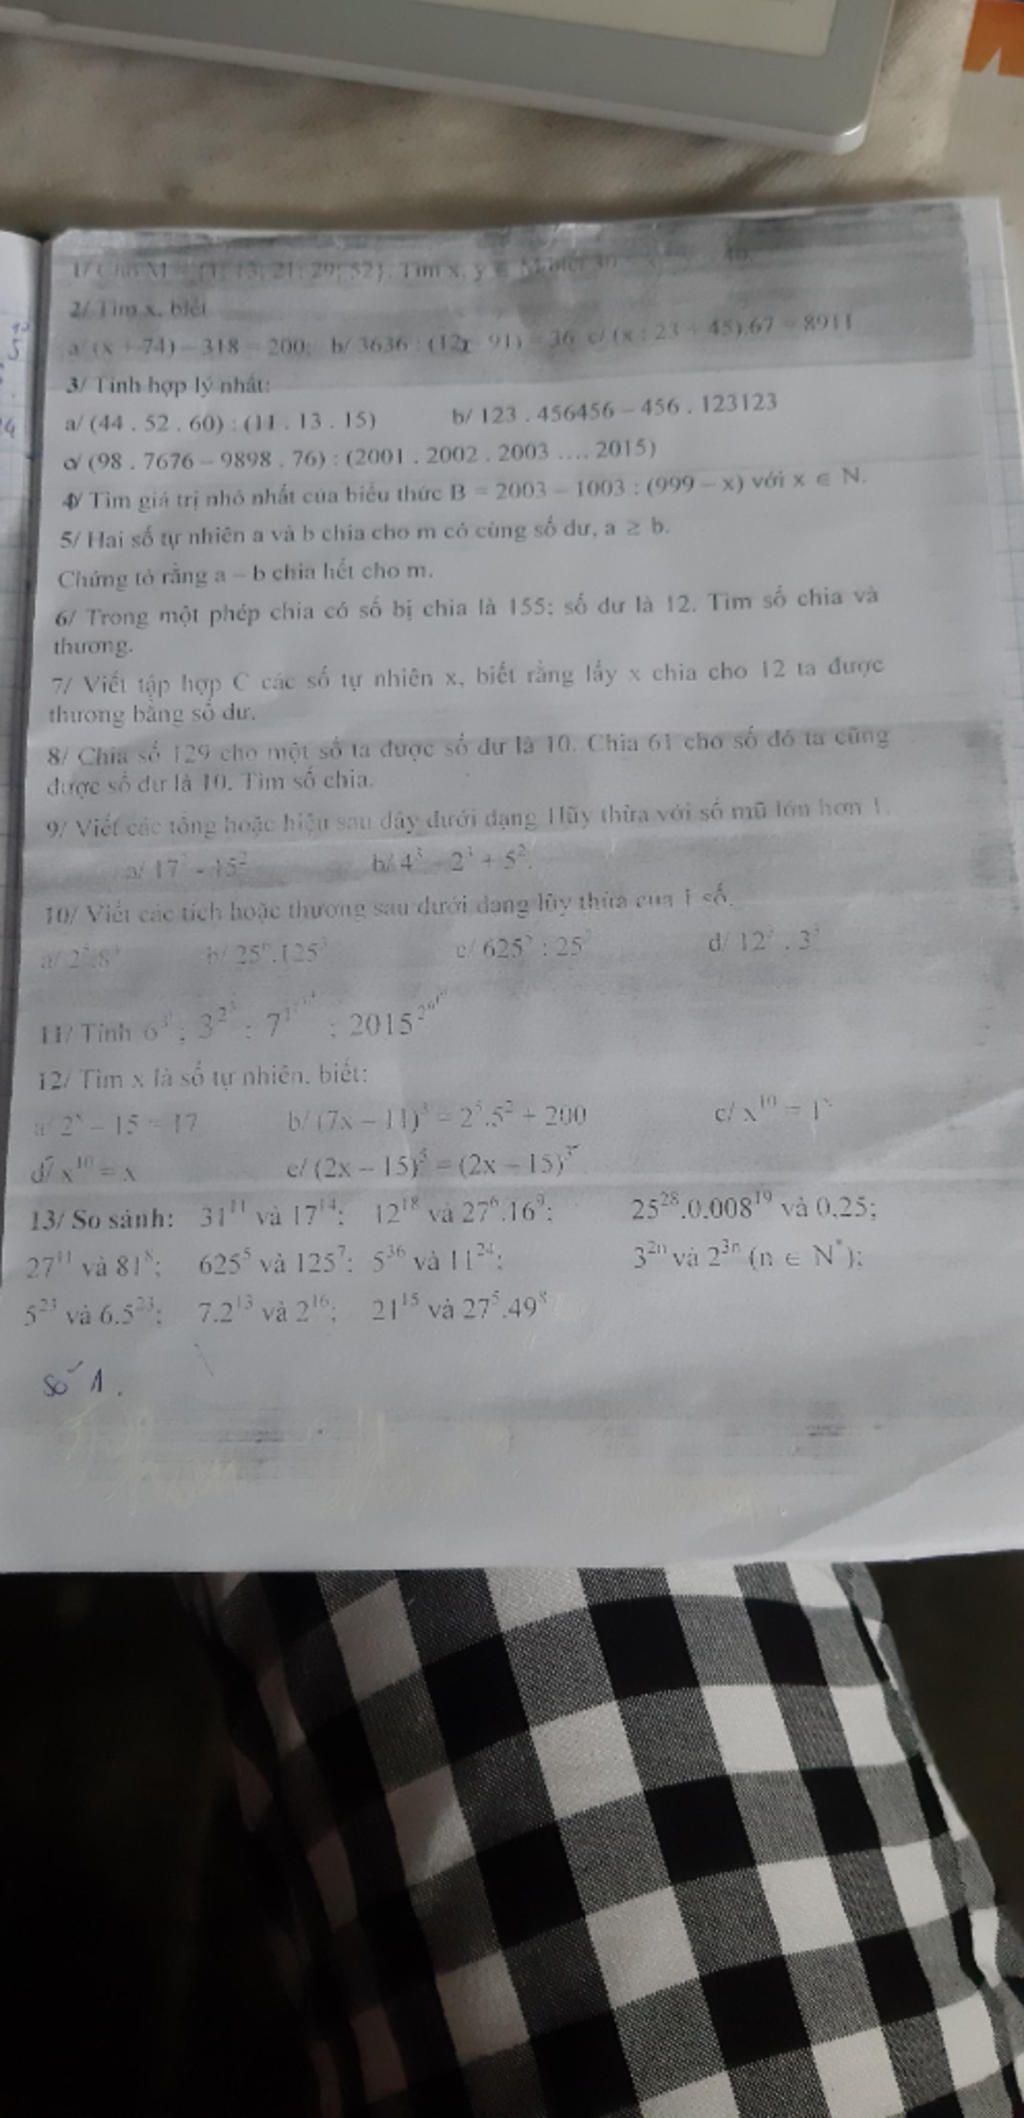 1/ Cho M = {1; 13; 21; 29; 52}. Tìm x, y ∈ M
2/ Tìm x, biết
a/ (x + 74) – 318 = 200; b/ 3636 : (12x – 91) = 36 c/ (x : 23 + 45).67 = 8911
3/ Tính hợp lý nhất:
a/ (44 . 52 . 60) : (11 . 13 . 15) b/ 123 . 456456 – 456 . 123123
c/ (98 . 7676 – 9898 . 76) : (2001 . 2002 . 2003 .... 2015)
4/ Tìm giá trị nhỏ nhất của biểu thức B = 2003 – 1003 : (999 – x) với x ∈ N.
5/ Hai số tự nhiên a và b chia cho m có cùng số dư, a ≥ b.
Chứng tỏ rằng a – b chia hết cho m.
6/ Trong một phép chia có số bị chia là 155; số dư là 12. Tìm số chia và
thương.
7/ Viết tập hợp C các số tự nhiên x, biết rằng lấy x chia cho 12 ta được
thương bằng số dư.
8/ Chia số 129 cho một số ta được số dư là 10. Chia 61 cho số đó ta cũng
được số dư là 10. Tìm số chia.
9/ Viết các tổng hoặc hiệu sau đây dưới dạng lũy thừa với số mũ lớn hơn 1.
a/ 17² - 15² b/ 4³ – 2³ + 5².
10/ Viết các tích hoặc thương sau dưới dạng lũy thừa của 1 số.
b/ 25⁶.125³ d/ 12³ . 3³
11/ Tính ; 2015
12/ Tìm x là số tự nhiên, biết:
a/ 2ˣ – 15 = 17 b/ (7x – 11)³ = 2⁵.5² + 200 c/ x¹⁰ = 1ˣ
d/ x¹⁰ = x e/ (2x – 15)⁵ = (2x – 15)³
13/ So sánh: 31¹¹ và 17¹⁴; 12¹⁸ và 27⁶.16⁹; 25²⁸.0,008¹⁹ và 0,25;
27¹¹ và 81⁸; 625⁵ và 125⁷; 5³⁶ và 11²⁴; 3²ⁿ và 2³ⁿ (n ∈ N*);
5²³ và 6.5²³; 7.2¹³ và 2¹⁶; 21¹⁵ và 27⁵.49⁸
Số 1.